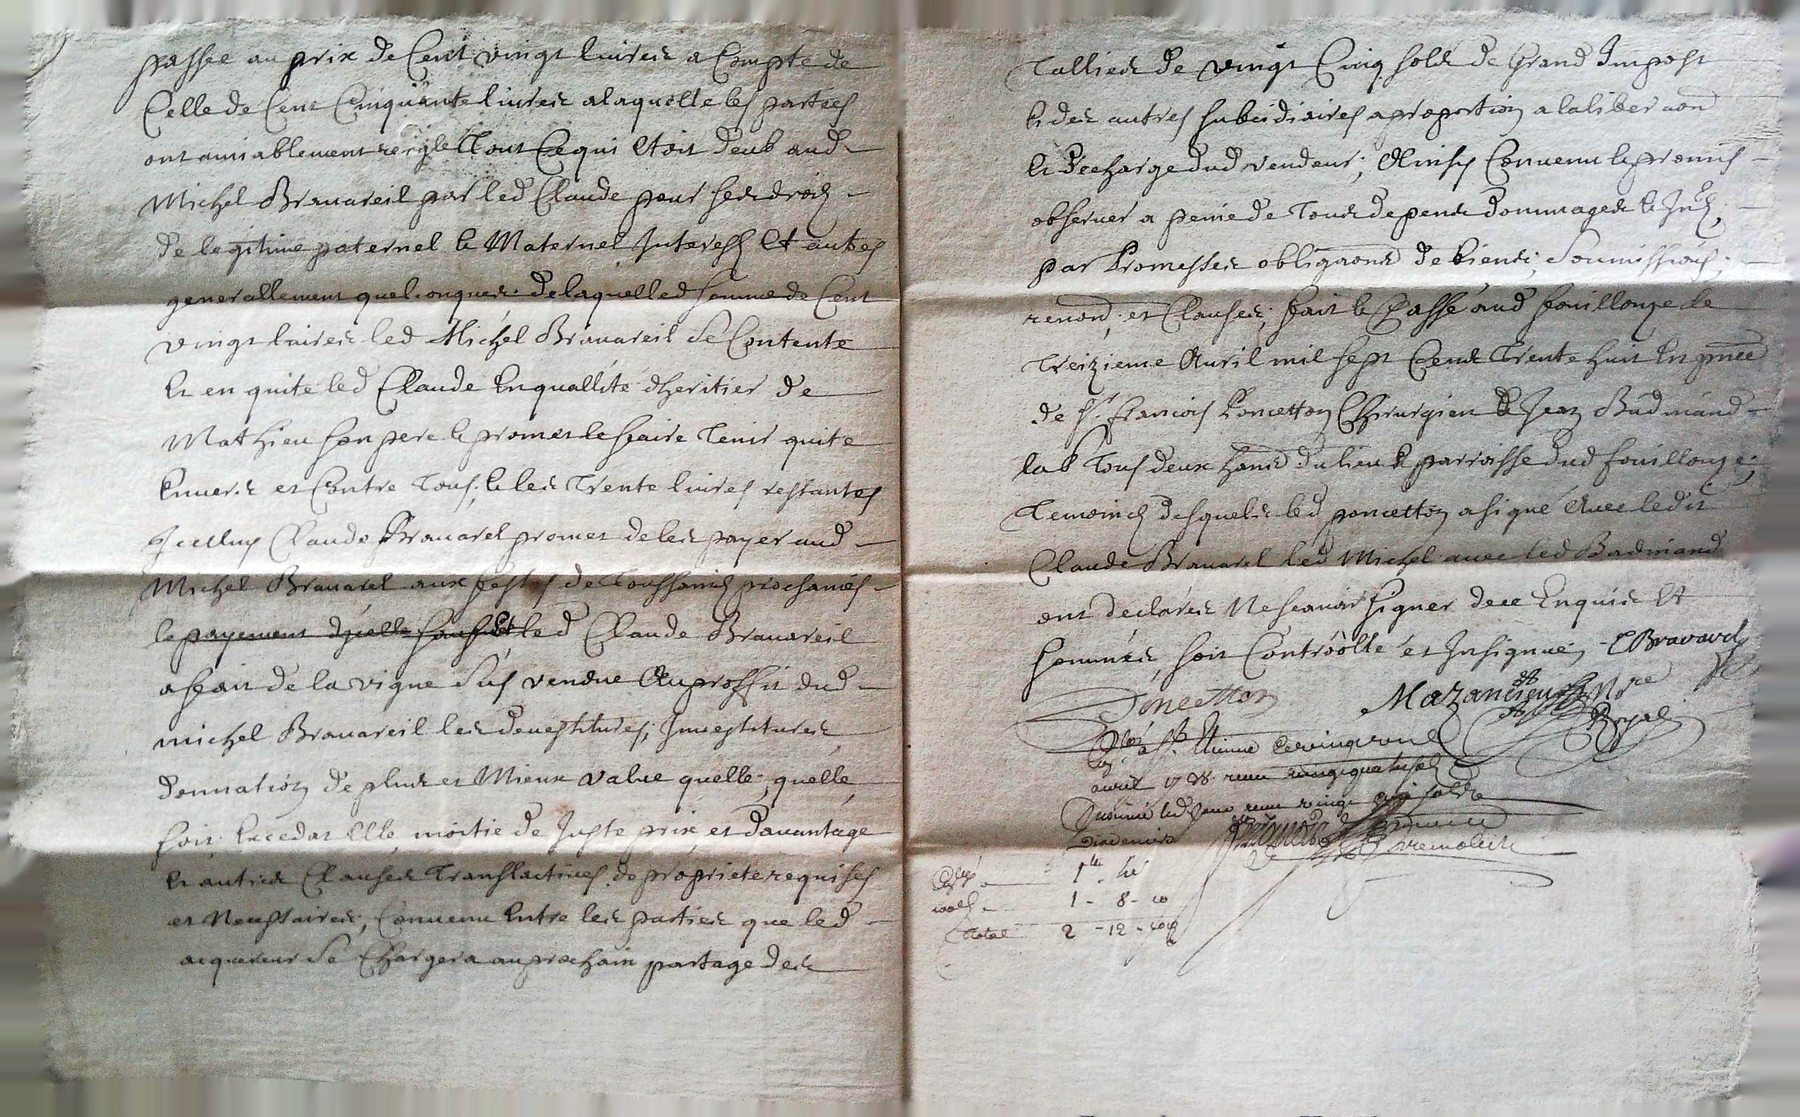 passee au prix de Cent vingt livres a Compte de
Celle de Cent Cinquante livres a laquelle les parties
ont amiablement reigle Tout Ce qui Etoit deub aud
Michel Bravareil par led Claude pour ses droits
de legitime paternel et Maternel Interests Et autres
generallement quelconques de laquelled somme de Cent
vingt livres led Michel Bravareil Se Contente
Et en quite led Claude En quallité dheritier de
Mathieu son pere et promet le faire Tenir quite
Envers et Contre Tous, et les Trente livres restantes
Icelluy Claude Bravarel promet de les payer aud
Michel Bravarel aux festes de Toussaincts prochaines
le payement dicelle led Claude Bravareil
a fait de la vigne Sus vendue Au proffit dud
michel Bravareil les devestitures, Investitures
donnation de plus et Mieux value quelle, quelle
soit Excedat Elle moitie de Juste prix et davantage
Et autres Clauses Translatives de propriete requises
et Necessaires, Convenu Entre les parties que led
acquereur Se Chargera au prochain partage des
Tallies de vingt Cinq sols de Grand Impost
Et des autres subcidiaires a proportion a la liberaon
Et decharge dud vendeur; Ainsy Convenu et promis
observer a peine de Tous depens dommages et Intz
par Promesses obligaons de biens, Soumissions;
renon, et Clauses; fait et Passé aud fouillouze le
Treizieme Avril mil sept Cens Trente huit En pnce
de Sr. francois Poncetton Chirurgien & Jean Badinand
lab Tous deux habts du lieu & parroisse dud fouillouze;
Temoins desquels led poncetton a signé Avec ledit
Claude Bravarel led Michel avec led Badinand
ont declarés Ne scavoir signer de ce Enquis Et
sommés, soit Contrôollé et Insigné; C Bravard
Poncetton Mazancieux Nore
Royal
a St. Etienne le vingt
avril 1738 receu vingt quatre sols
Insinué led jour receu vingt cinq sols
1 - 8 - 0
total 2 - 12 -